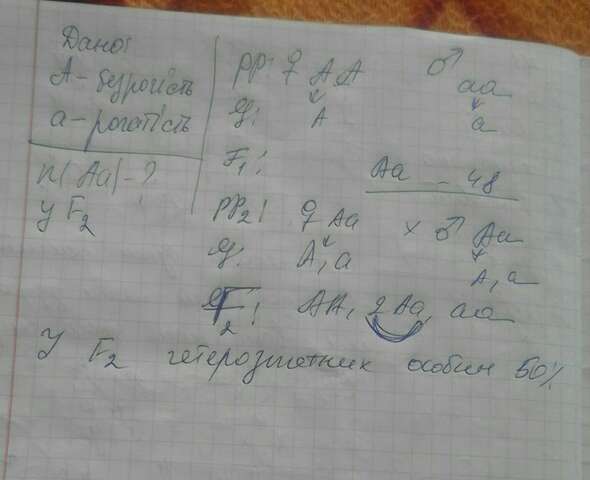 Дано:
A - безрогість
a - рогатість
n(Aa) - ?
у F2
PP: ♀ AA ♂ aa
g: A a
F1: Aa - 48
PP2: ♀ Aa × ♂ Aa
g: A, a A, a
F2: AA, 2Aa, aa
У F2 гетерозиготних особин 50%